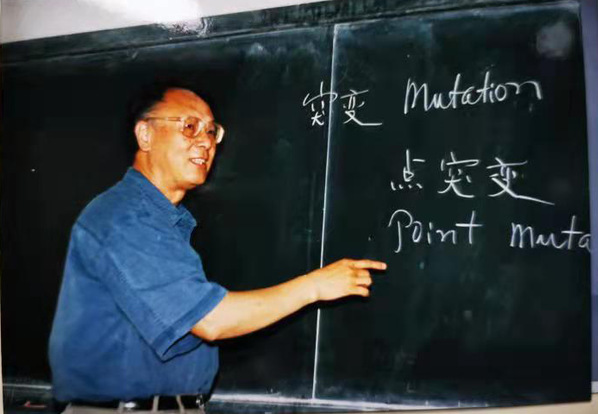 突变 Mutation
点突变
Point muta